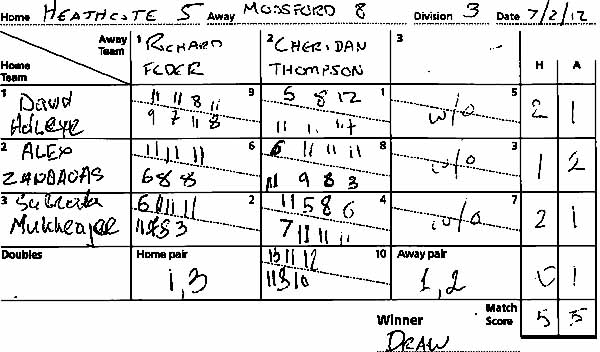 Home HEATHCOTE 5 Away MOSSFORD 8 Division 3 Date 7/2/12
Away Team
Home Team
1 RICHARD
2 CHERIDAN THOMPSON
3
H A
1 David
9
11 11 8 11
9 7 11 8
1
5 8 12
5
w/o
2 1
2 ALEX
6
11 11 11
6 8 8
8
6 11 11 11
11 9 8 3
3
w/o
1 2
3
Mukherjee
2
6 11 11 11
4
11 5 8 6
7 11 11 11
7
w/o
2 1
Doubles
Home pair
1,3
10
Away pair
1,2
0 1
Winner
DRAW
Match Score
5 5